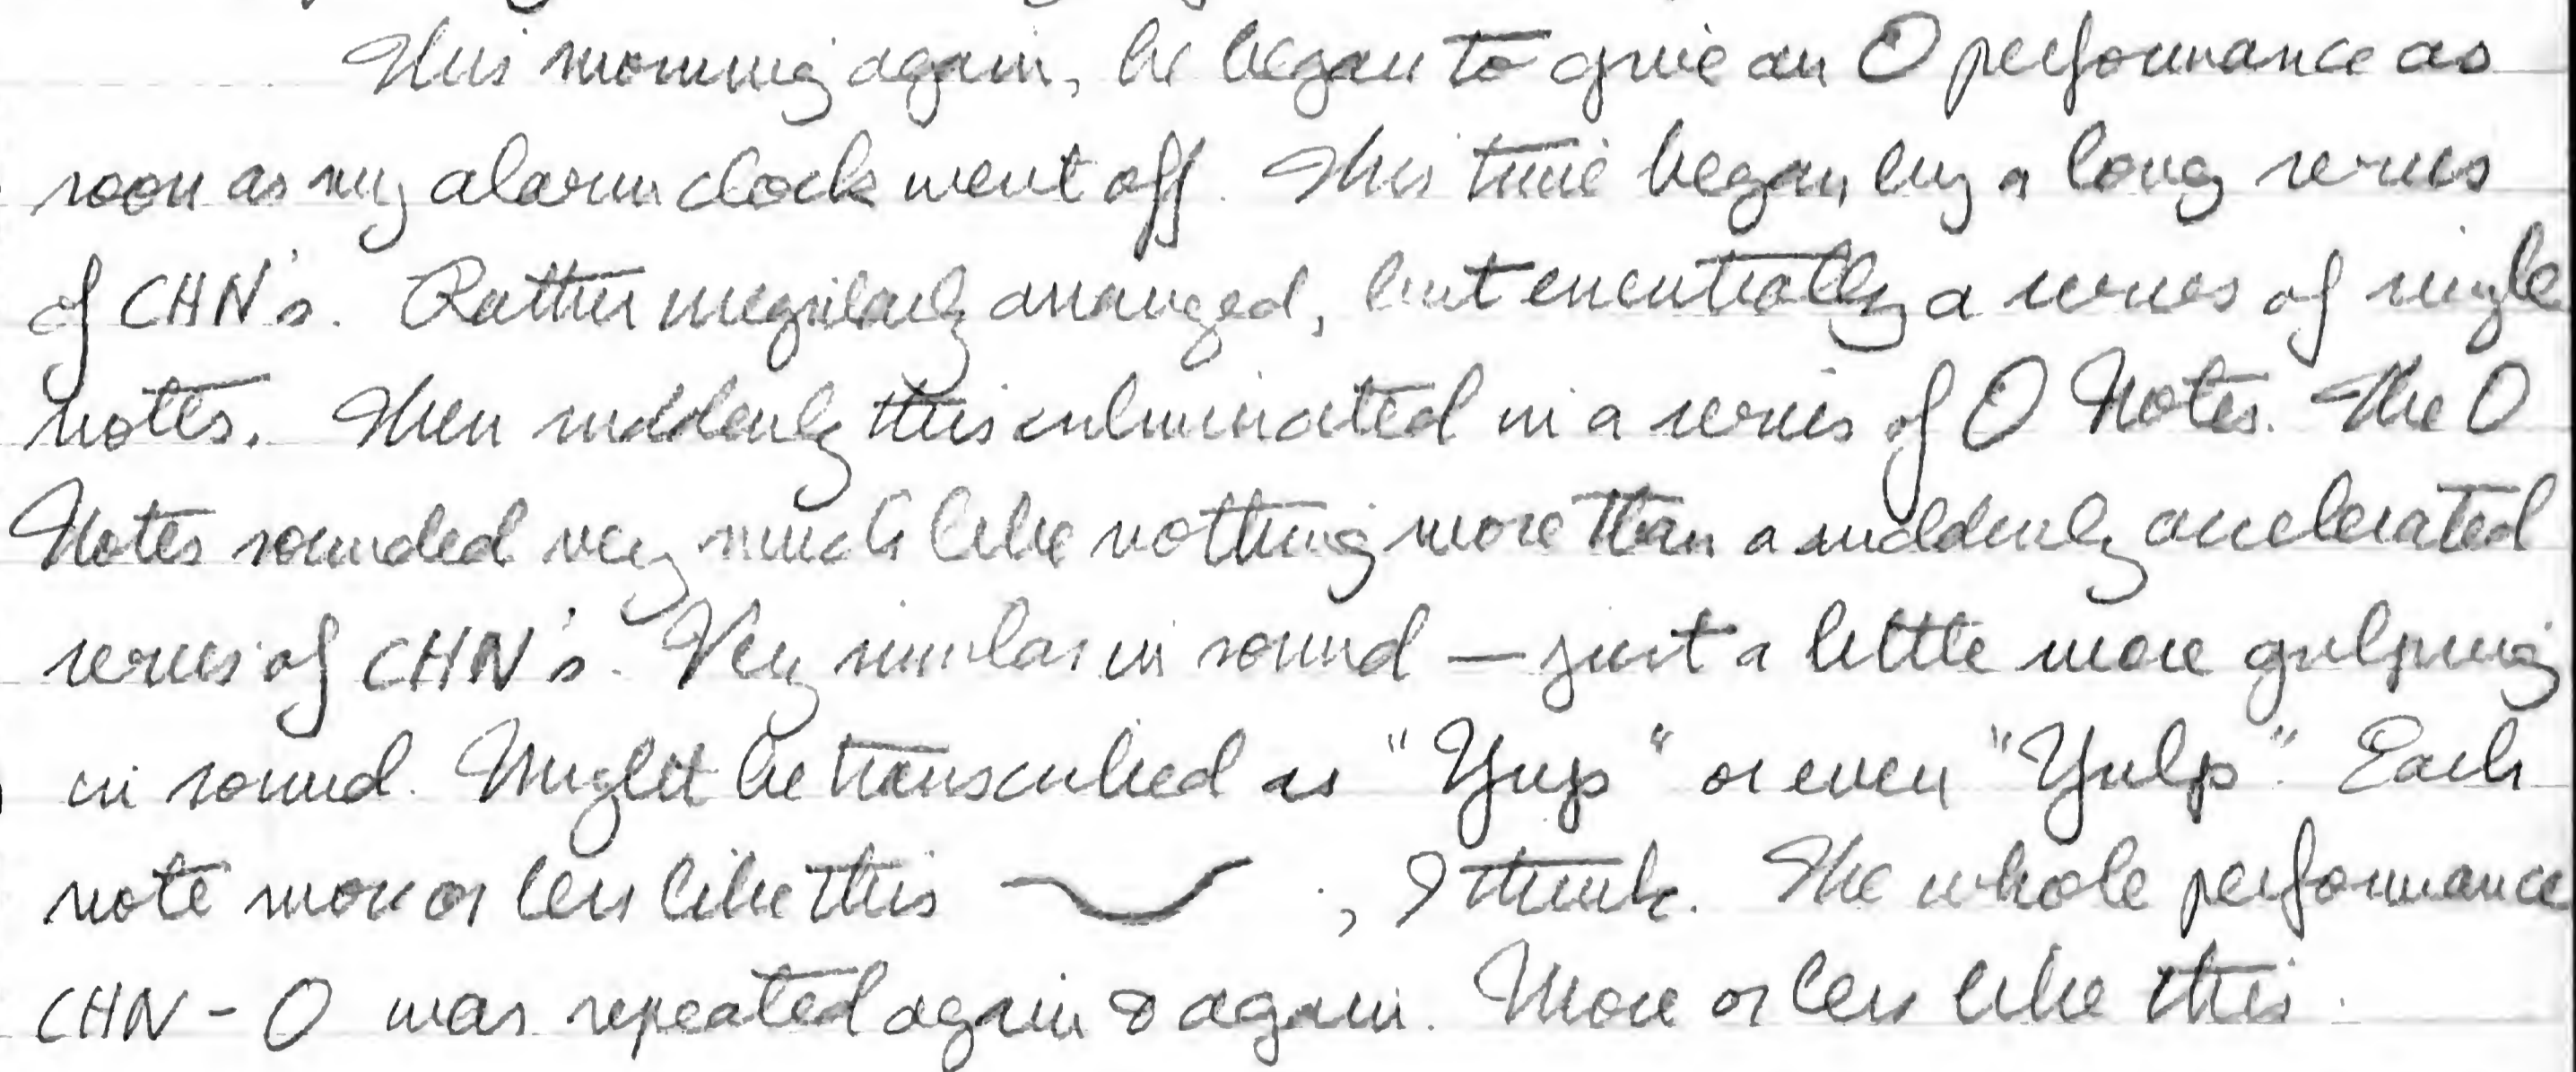 This morning again, he began to give an O performance as
soon as my alarm clock went off. This time began by a long series
of CHN's. Rather irregularly arranged, but essentially a series of single
notes. Then suddenly this culminated in a series of O Notes. The O
Notes sounded very much like nothing more than a suddenly accelerated
series of CHN's. Very similar in sound — just a little more gulping
in sound. Might be transcribed as "Yup" or even "Yulp". Each
note more or less like this , I think. The whole performance
CHN - O was repeated again & again. More or less like this.